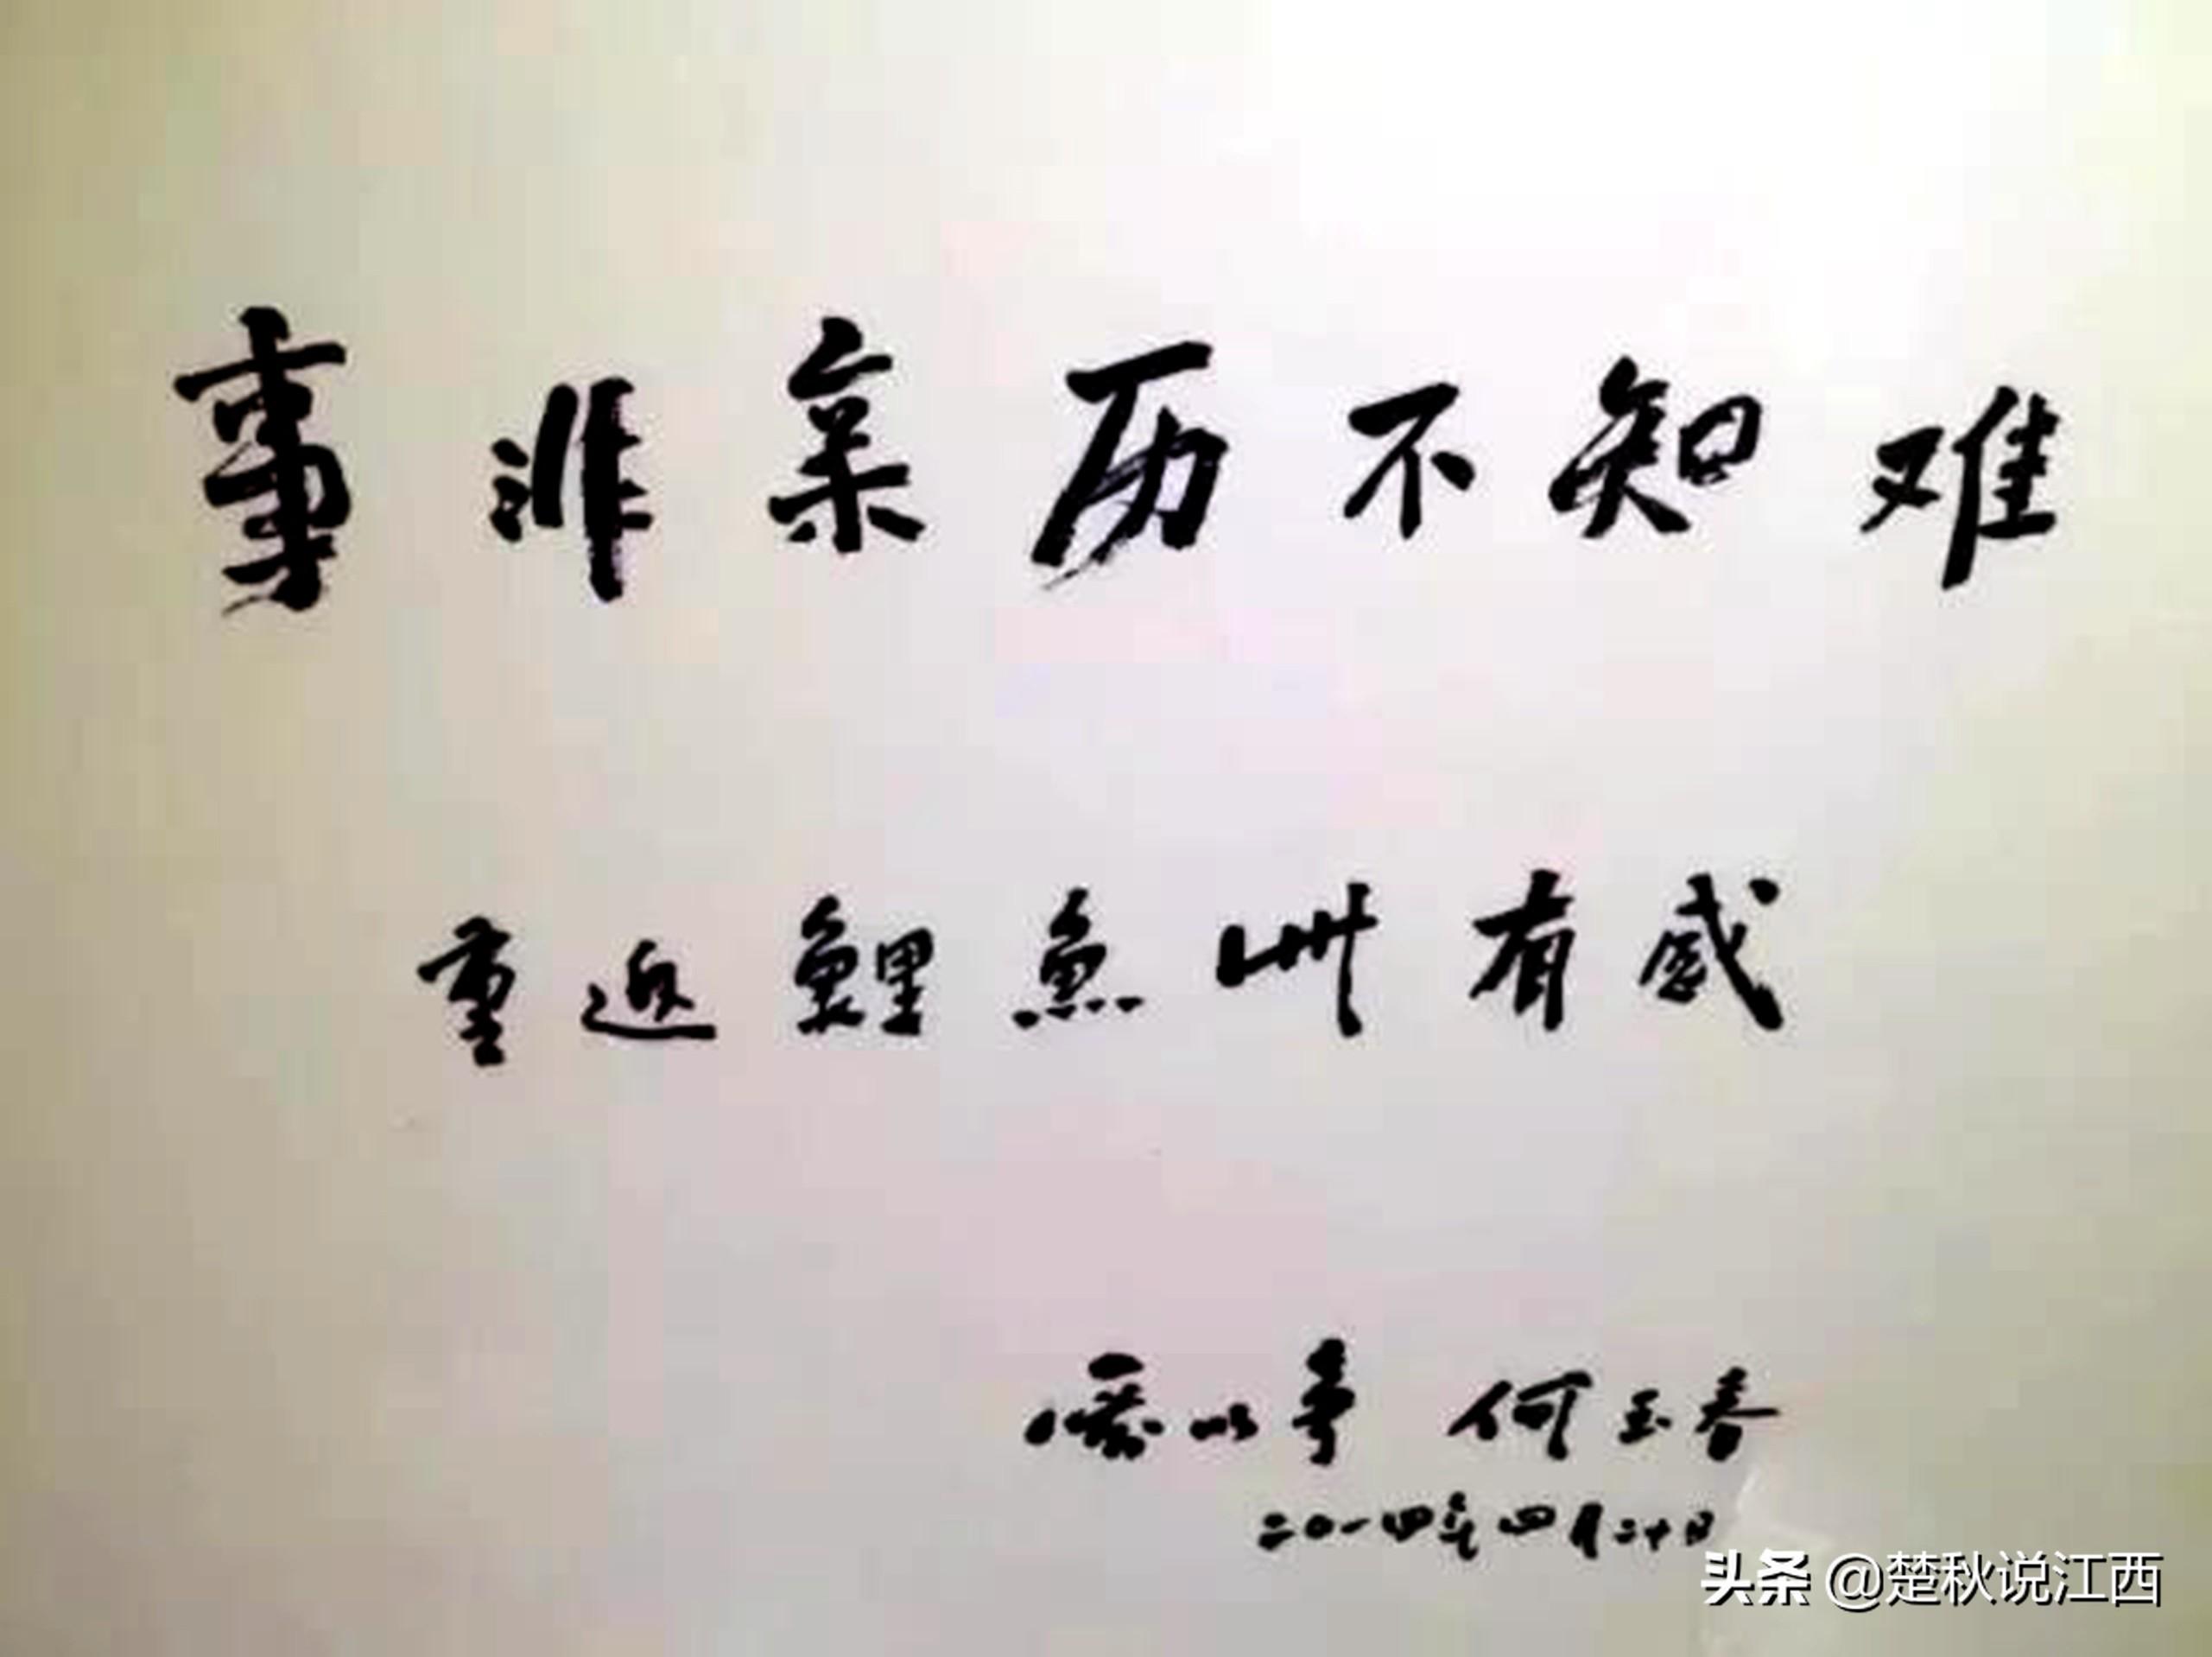 事非亲历不知难
重返鲤鱼洲有感
厉以宁 何玉春
二〇一四年四月二十日
头条 @楚秋说江西